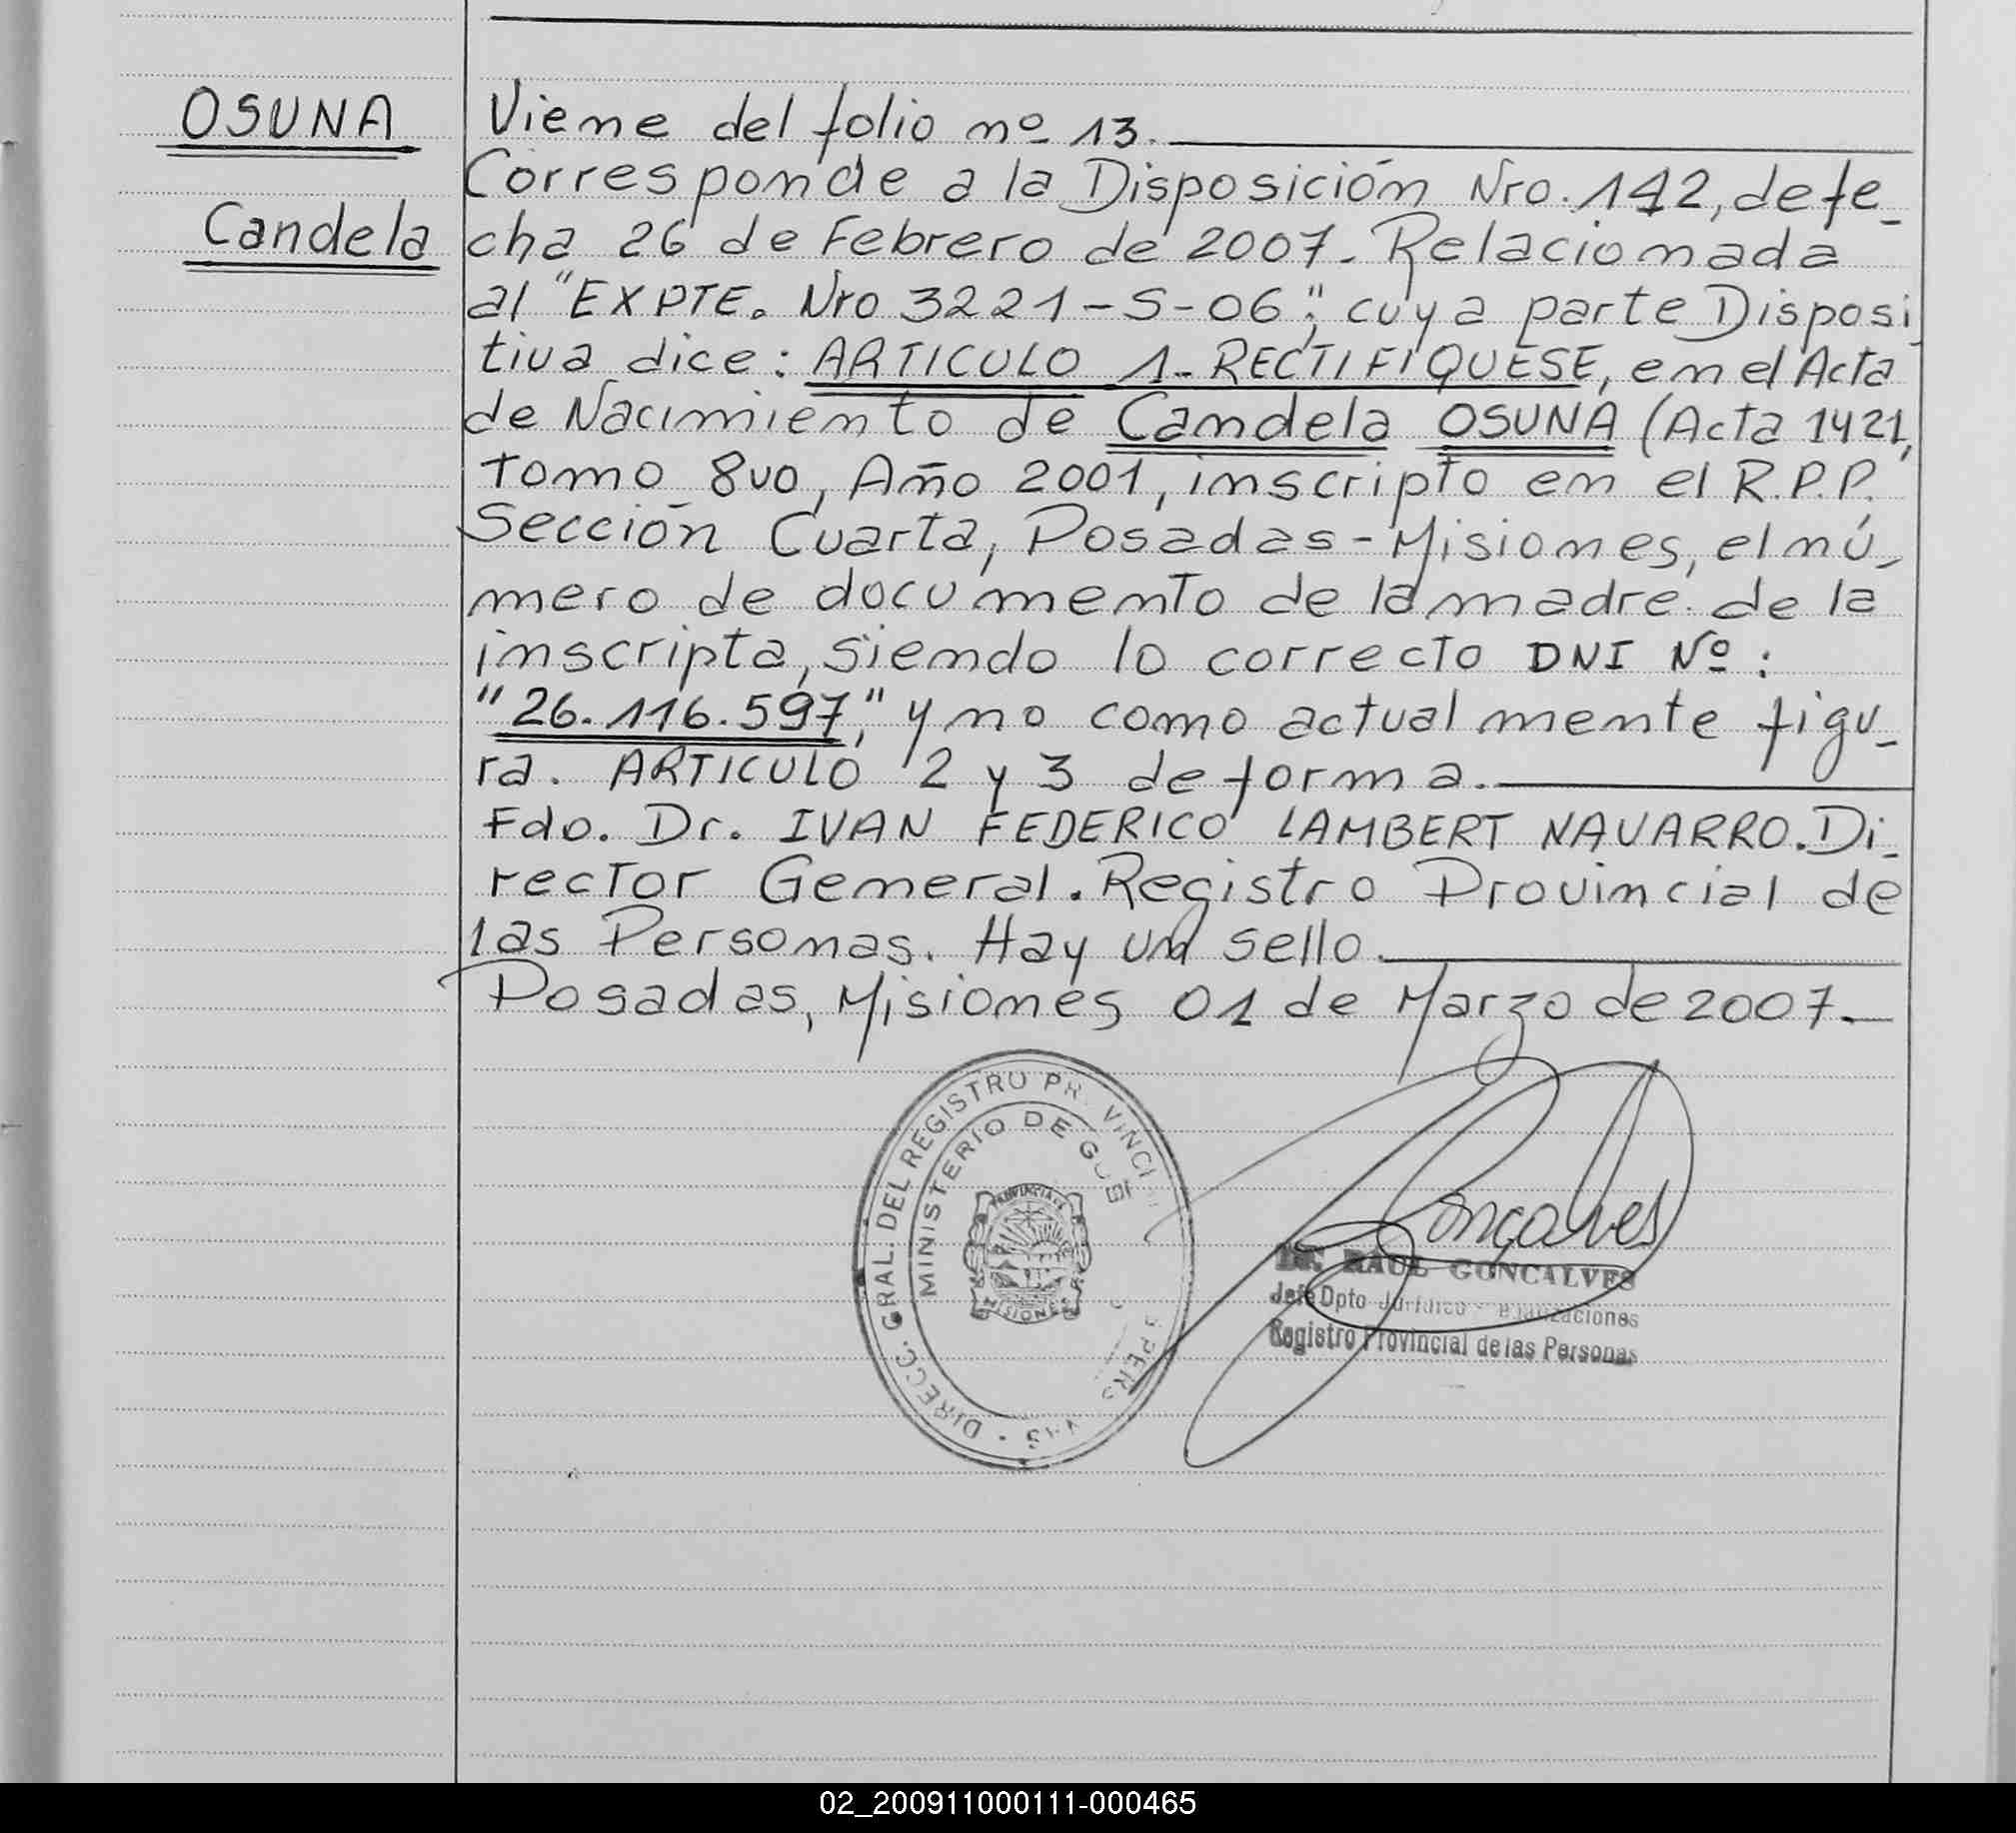 OSUNA
Candela
Viene del folio nº 13.
Corresponde a la Disposición Nro. 142, de fe-
cha 26 de Febrero de 2007. Relacionada
al "EXPTE. Nro 3221-S-06", cuya parte Disposi
tiva dice: ARTICULO 1- RECTIFIQUESE, en el Acta
de Nacimiento de Candela OSUNA (Acta 1421,
Tomo 8vo, Año 2001, inscripto en el R.P.P.
Sección Cuarta, Posadas-Misiones, el nú-
mero de documento de la madre de la
inscripta, siendo lo correcto DNI Nº:
"26.116.597", y no como actualmente figu-
ra. ARTICULO 2 y 3 de forma.
Fdo. Dr. IVAN FEDERICO LAMBERT NAVARRO. Di-
rector General. Registro Provincial de
las Personas. Hay un sello.
Posadas, Misiones 01 de Marzo de 2007.
DIRECC. GRAL. DEL REGISTRO
MINISTERIO DE
PROVINCIA DE
MISIONES
Gonçalves
Dr. RAUL GONCALVES
Jefe Dpto Jurídico
Registro Provincial de las Personas
02_200911000111-000465